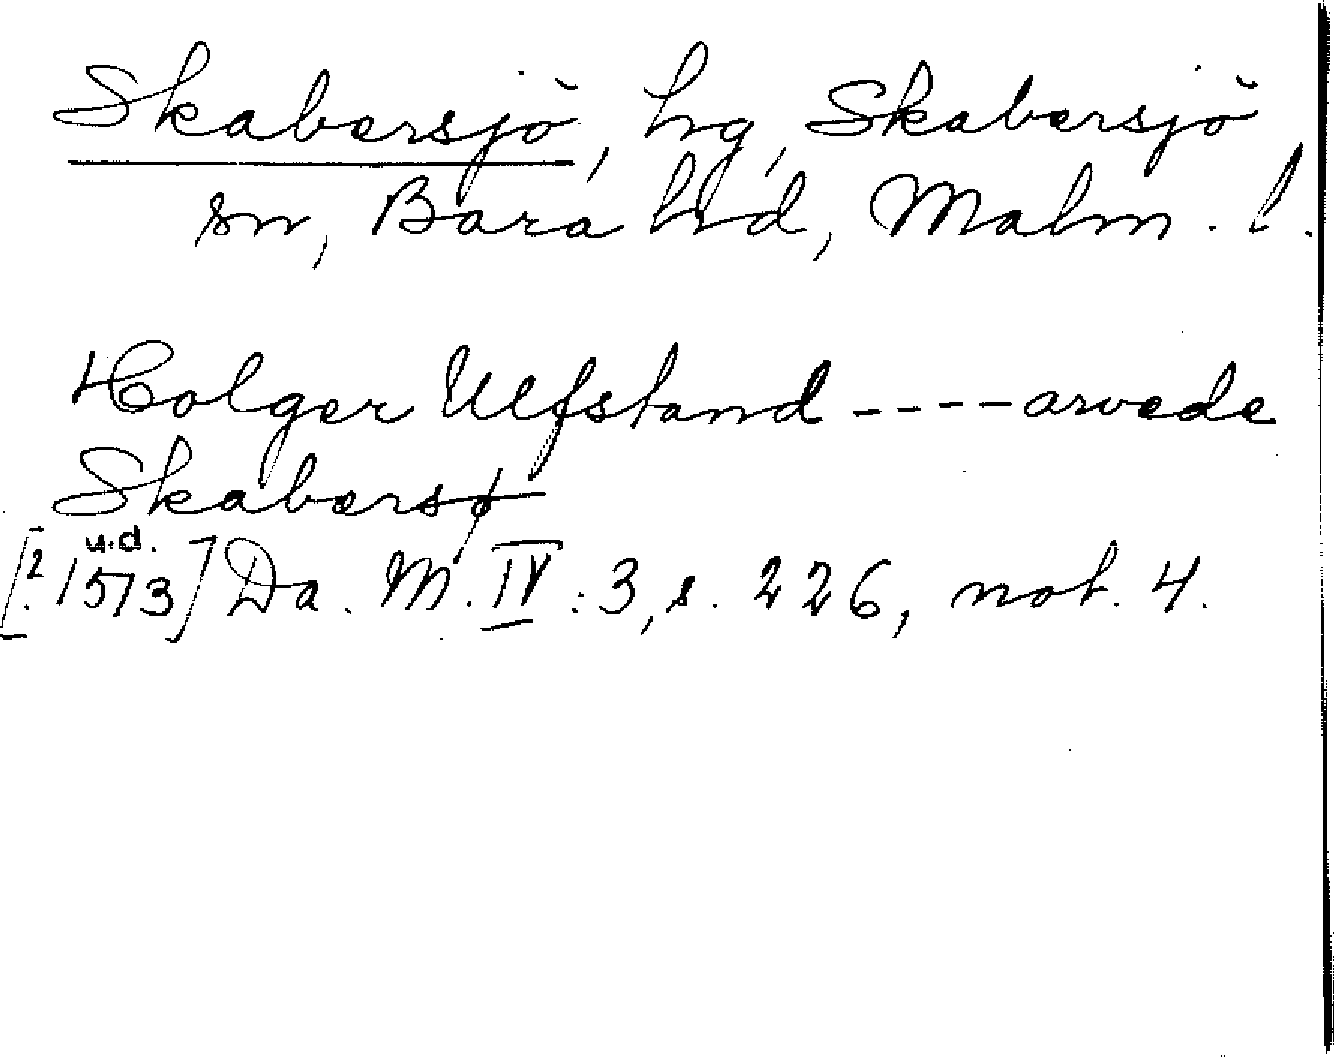 Skabersjö, hg, Skabersjö
sn, Bara hd, Malm. l.
Holger Ulfstand ---- arvede
Skabersø
u.d.
[? 1573] Da. M. IV : 3, s. 226, not. 4.